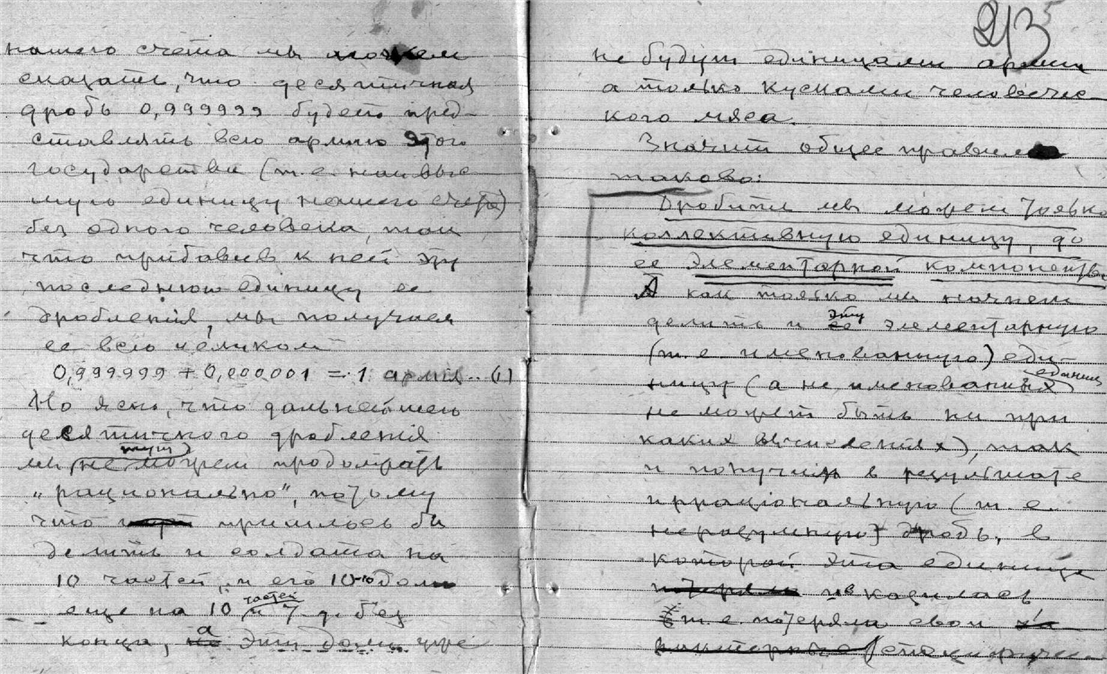 нашего счета мы можем
сказать, что десятичная
дробь 0,999999 будет пред-
ставлять всю армию этого
государства (т.е. наивыс
шую единицу нашего счета)
без одного человека, так
что прибавив к ней эту
последнюю единицу ее
дробления, мы получаем
ее всю целиком
0,999999 + 0,000001 = 1 армия.. (1)
Но ясно, что дальнейшего
десятичного дробленія
мы тут не можем продолжать
„рационально", потому
что пришлось бы
делить и солдата на
10 частей, и его 10-ю долю
еще на 10 частей и т. д. без
конца, а эти доли уже
213
не будут единицами армии
а только кусками человечес
кого мяса.
Значит общее правило
таково:
Дробить мы можем только
коллективную единицу, до
ее элементарной компоненты.
А как только мы начнем
делить и эту элементарную
(т.е. именованную) еди-
ницу (а не именованных единиц
не может быть ни при
каких вычисленіях), так
и получим в результате
ирраціональную (т.е.
неразумную) дробь, в
которой эта единица
исказилась
т.е. потеряла свои